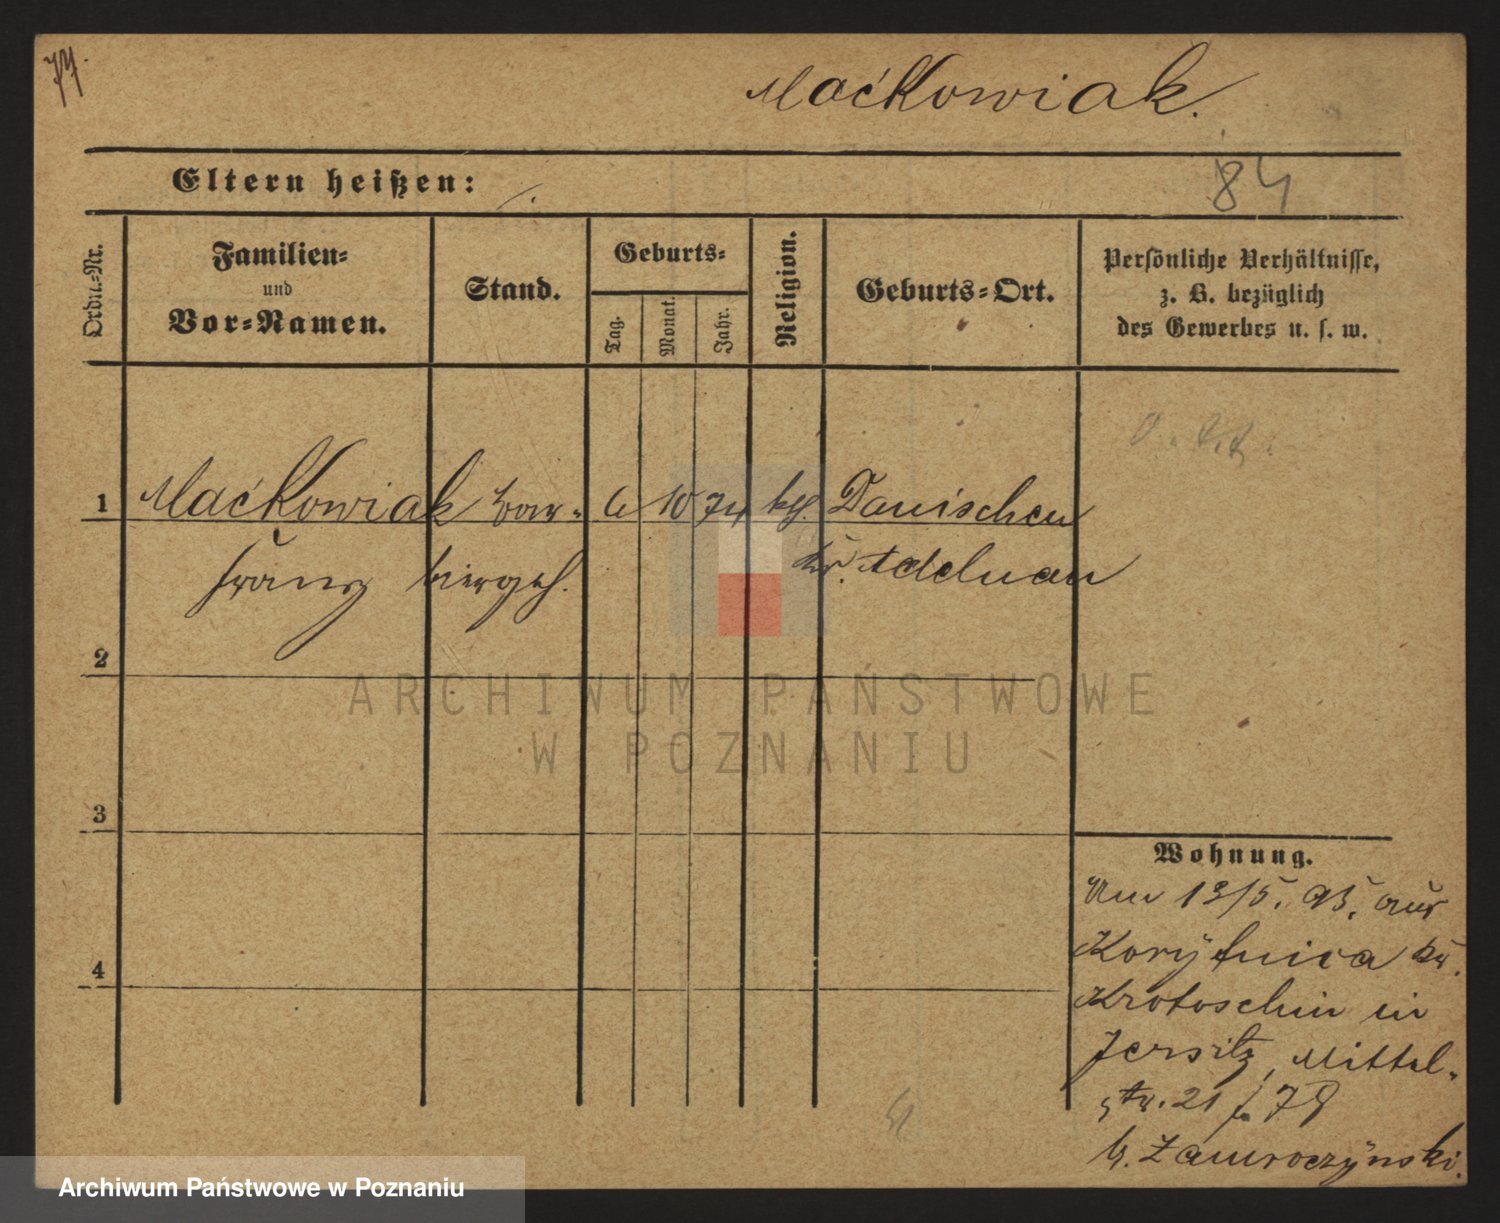 77.
Maćkowiak.
Eltern heißen:
84
Ordn.-Nr.
Familien-
und
Vor-Namen.
Stand.
Geburts-
Tag.
Monat.
Jahr.
Religion.
Geburts-Ort.
Persönliche Verhältnisse,
z. B. bezüglich
des Gewerbes u. s. w.
1 Maćkowiak bar- 6 10 74 kth. Danischen
Franz biergeh. Kr. Adelnau
2
ARCHIWUM PAŃSTWOWE
W POZNANIU
3
Wohnung.
Am 13/5. 95. aus
4
Korytnica Kr.
Krotoschin in
Jersitz, Mittel-
str. 21 f. 78
b. Zamroczynski.
Archiwum Państwowe w Poznaniu